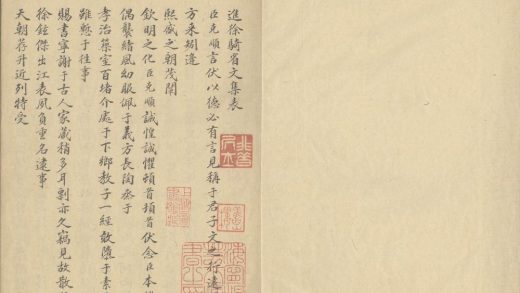 進徐騎省文集表
臣克順言伏以德必有言見稱于君子文之行遠
方來蜩遑
熙盛之朝茂闡
欽明之化臣克順誠惶誠懼頓首頓首伏念臣本
偶襲緒風幼服佩于義方長陶烝于
孝治築室百堵介處于下鄉教子一經敢墮于素
雖慙于往事
賜書寧謝于古人家藏稍多耳剽亦久竊見故散
徐鉉傑出江表夙負重名逮事
天朝荐升近列特受